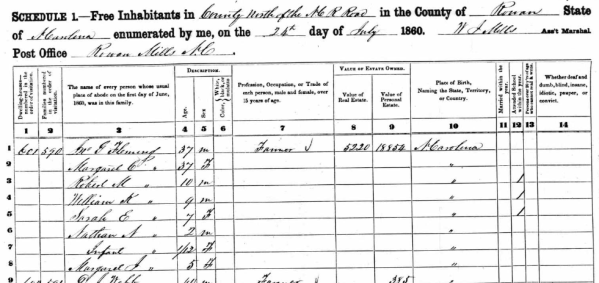 SCHEDULE 1.—Free Inhabitants in County North of the N C R Road in the County of Rowan State
of N Carolina enumerated by me, on the 24th day of July 1860. Ass't Marshal
Post Office Rowan Mills N C
Dwelling-houses numbered in the order of visitation.
Families numbered in the order of visitation.
The name of every person whose usual place of abode on the first day of June, 1860, was in this family.
DESCRIPTION.
Age.
Sex.
Color,
Profession, Occupation, or Trade of each person, male and female, over 15 years of age.
VALUE OF ESTATE OWNED.
Value of Real Estate.
Value of Personal Estate.
Place of Birth, Naming the State, Territory, or Country.
Married within the year.
Attended School within the year.
Whether deaf and dumb, blind, insane, idiotic, pauper, or convict.
1 2 3 4 5 6 7 8 9 10 11 12 13 14
1 601 590 Fleming 37 m Farmer 5220 N Carolina
2 Margaret C " 37 F "
3 Robert M " 10 m " 1
4 William " 9 m " 1
5 Sarah E " 7 F " 1
6 Nathan A " 2 m "
7 Infant " 1/12 F "
8 Margaret J " 5 F "
9 Webb m Farmer 385